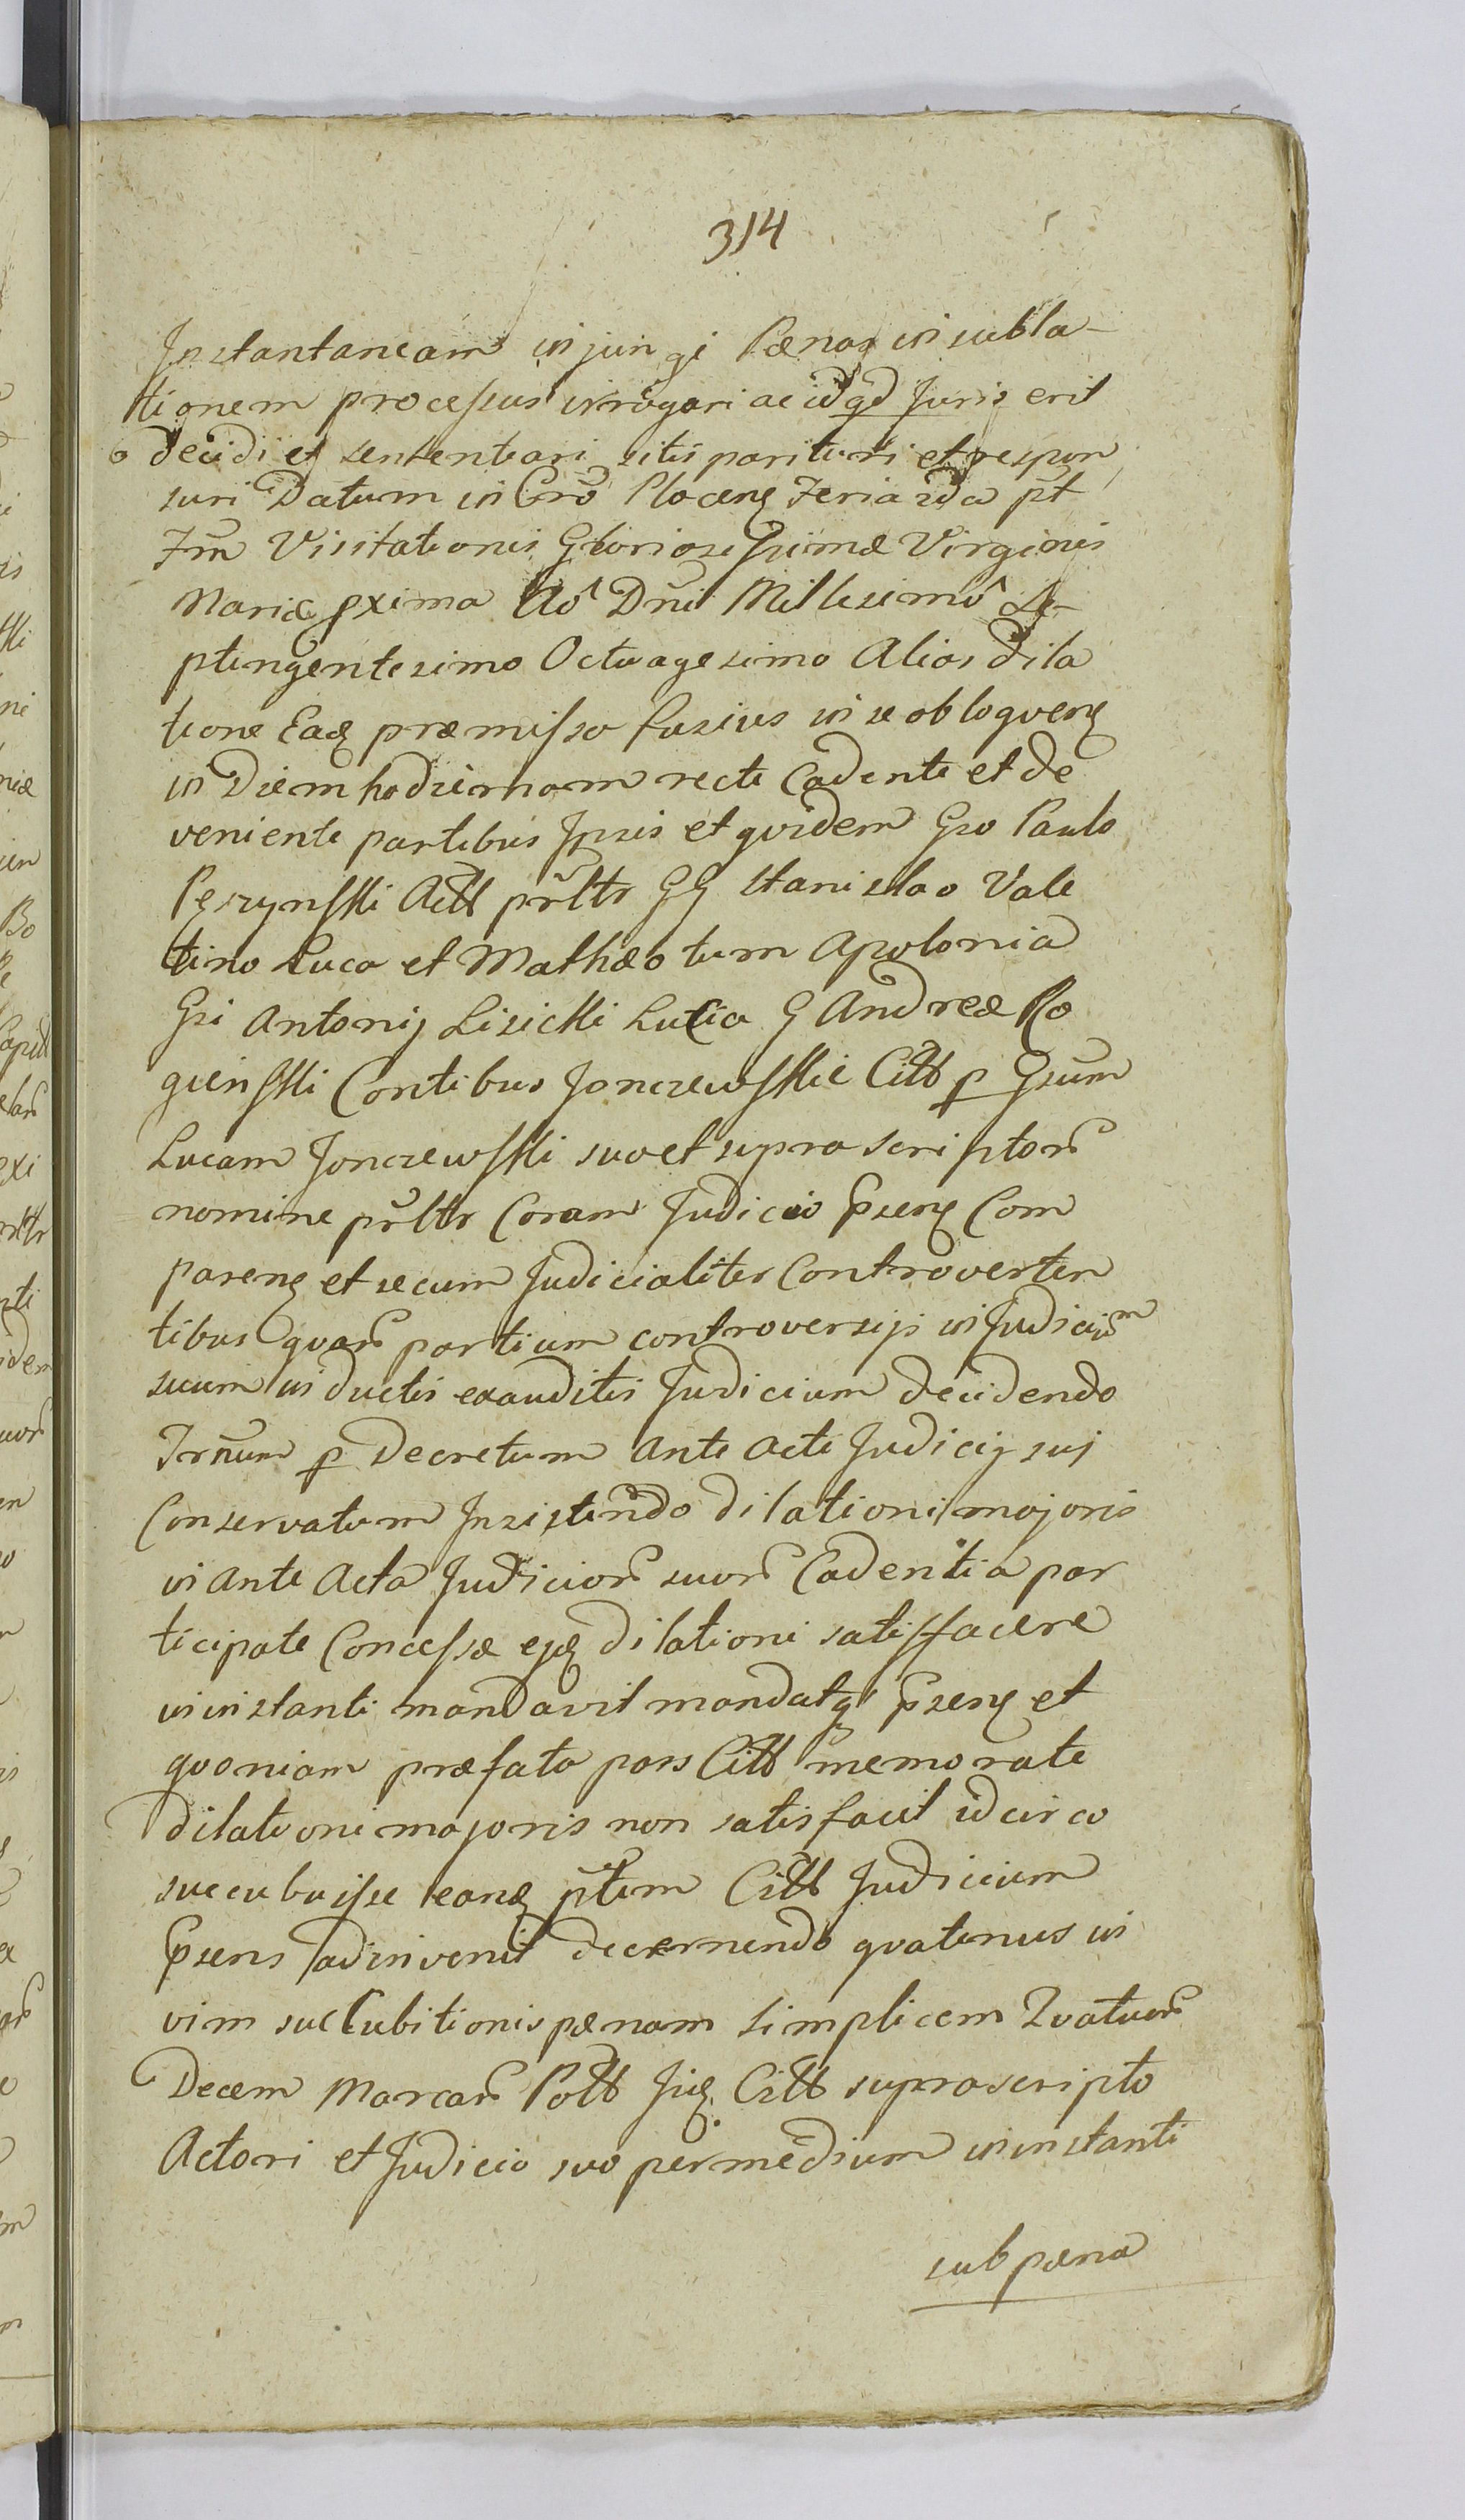 314
Instantaneam injungi Pænas in subla-
tionem processus irrogari ac id qd Juris erit
decidi et sententiari sitis parituri et respon
suri Datum in Cro Plocen Feria 2da pt
Fm Visitationis Gloriosissimæ Virginis
Mariæ pxima Ao Dni Millesimo Se-
ptingentesimo Octuagesimo Alias dila
tione Ead præmisso fusius in se obloquen
in Diem hodiernam recte Cadente et de
veniente partibus Ipsis et quidem Gso Paulo
Pęczynski Actt prltr GG Stanislao Vale
tino Luca et Mathæo tum Apolonia
Gsi Antonij Lisicki Lucia G Andreæ Ro
gienski Contibus Jonczewskie Citt p Gsum
Lucam Jonczewski suo et supra scriptor
nomine prltr Coram Judicio Psen Com
paren et secum Judicialiter Controverten
tibus quar partium controversijs in Judicium
suum inductis exauditis Judicium decidendo
Trnum p Decretum Ante Acte Judicij suj
Conservatum Insistendo dilationi majoris
in Ante Acta Judicior suor Cadentia par
ticipate Concessæ ejd dilationi satisfacere
in instanti mandavit mandatq Psen et
quoniam præfata pars Citt memoratæ
dilationi majoris non satisfacit idcirco
succubuisse eand ptem Citt Judicium
Psens adinvenit decernendo quatenus in
vim succubitionis pænam simplicem Quatuor
Decem Marcar Poll Jid Citt suprascripto
Actori et Judicio suo per medium in instanti
sub pæna